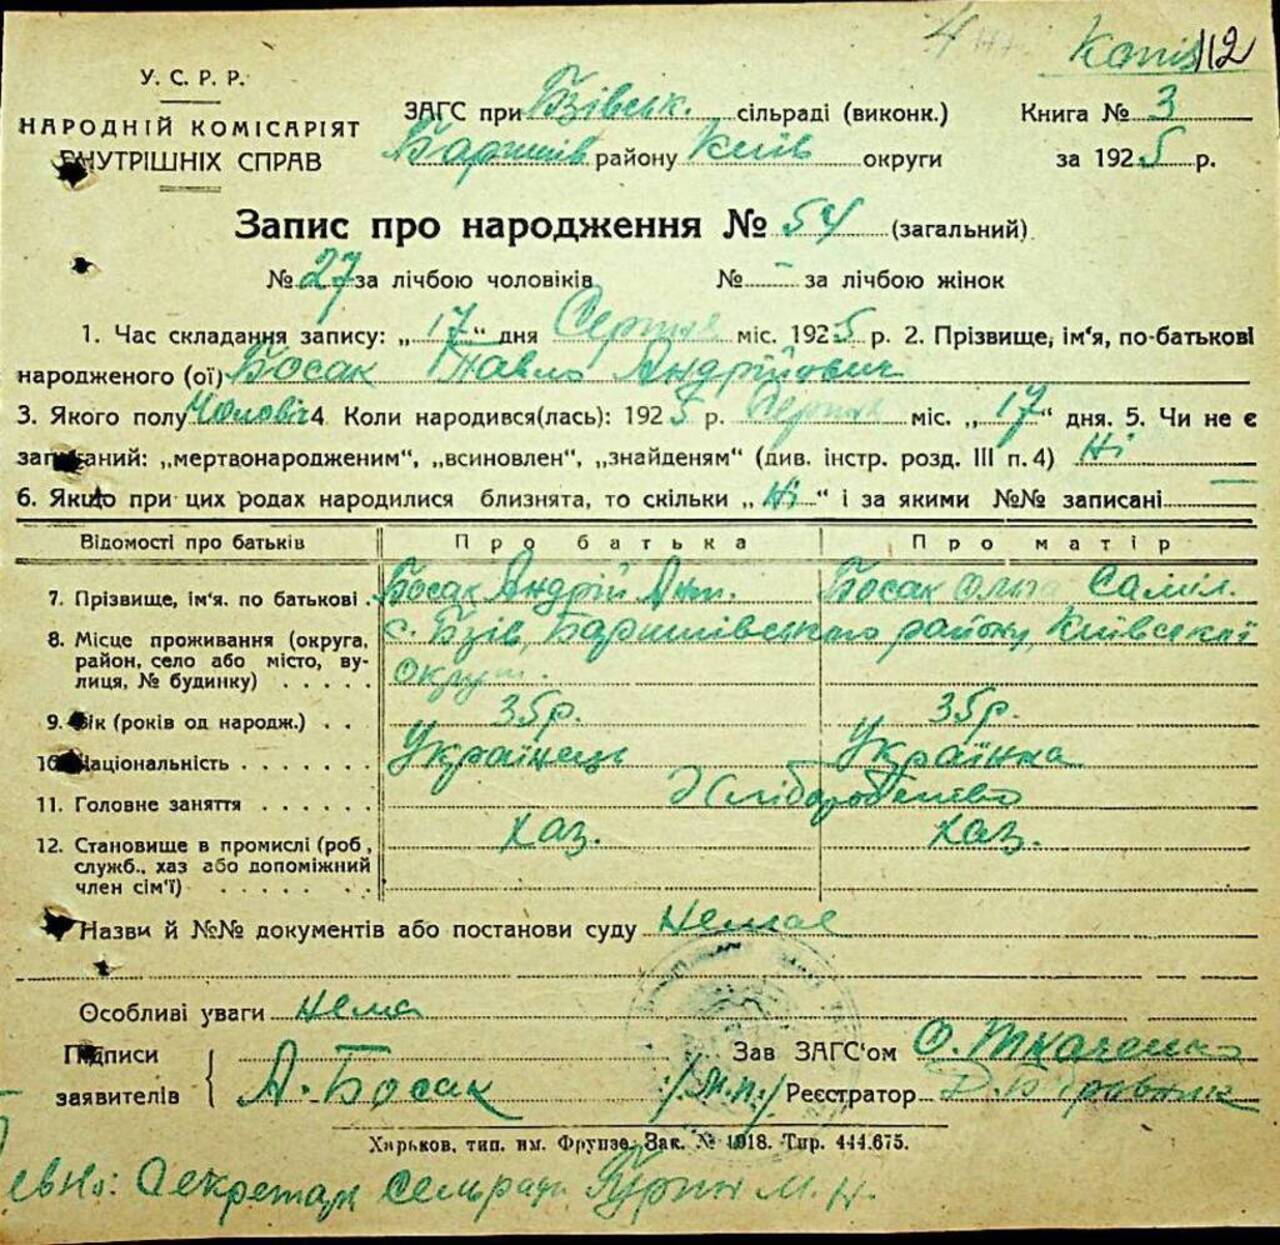 4 Копія 112
У. С. Р. Р.
НАРОДНІЙ КОМІСАРІЯТ
ВНУТРІШНІХ СПРАВ
ЗАГС при Бзівськ. сільраді (виконк.) Книга № 3
Баришів району Київ округи за 1925 р.
Запис про народження № 54 (загальний)
№ 27 за лічбою чоловіків № - за лічбою жінок
1. Час складання запису: „17“ дня Серпня міс. 1925 р. 2. Прізвище, ім'я, по-батькові
народженого (ої) Босак Павло Андрійович
3. Якого полу Чоловіч 4 Коли народився(лась): 1925 р. Серпня міс. „17“ дня. 5. Чи не є
записаний: „мертвонародженим“, „всиновлен“, „знайденям“ (див. інстр. розд. III п. 4) Ні
6. Якщо при цих родах народилися близнята, то скільки „Ні“ і за якими №№ записані —
Відомості про батьків Про батька Про матір
7. Прізвище, ім'я. по батькові . Босак Андрій Ант. Босак Ольга Самійл.
8. Місце проживання (округа, район, село або місто, вулиця, № будинку) . . . . . с. Бзів, Баришівського району, Київської
округи.
9. Вік (років од народж.) . . 35р. 35р.
10. Національність . . . . . . . Українець Українка
11. Головне заняття . . . . . . Хліборобство
12. Становище в промислі (роб, служб., хаз або допоміжний член сім'ї) . . . . . . . хаз. хаз.
Назви й №№ документів або постанови суду Немає
Особливі уваги Нема
Підписи заявителів А. Босак
Зав ЗАГС'ом О. Ткаченко
/М.П./ Реєстратор Д. Бобровник
Харьков, тип. им. Фрунзе. Зак. № 1918. Тир. 444.675.
евно: Секретар сельради М. Н.